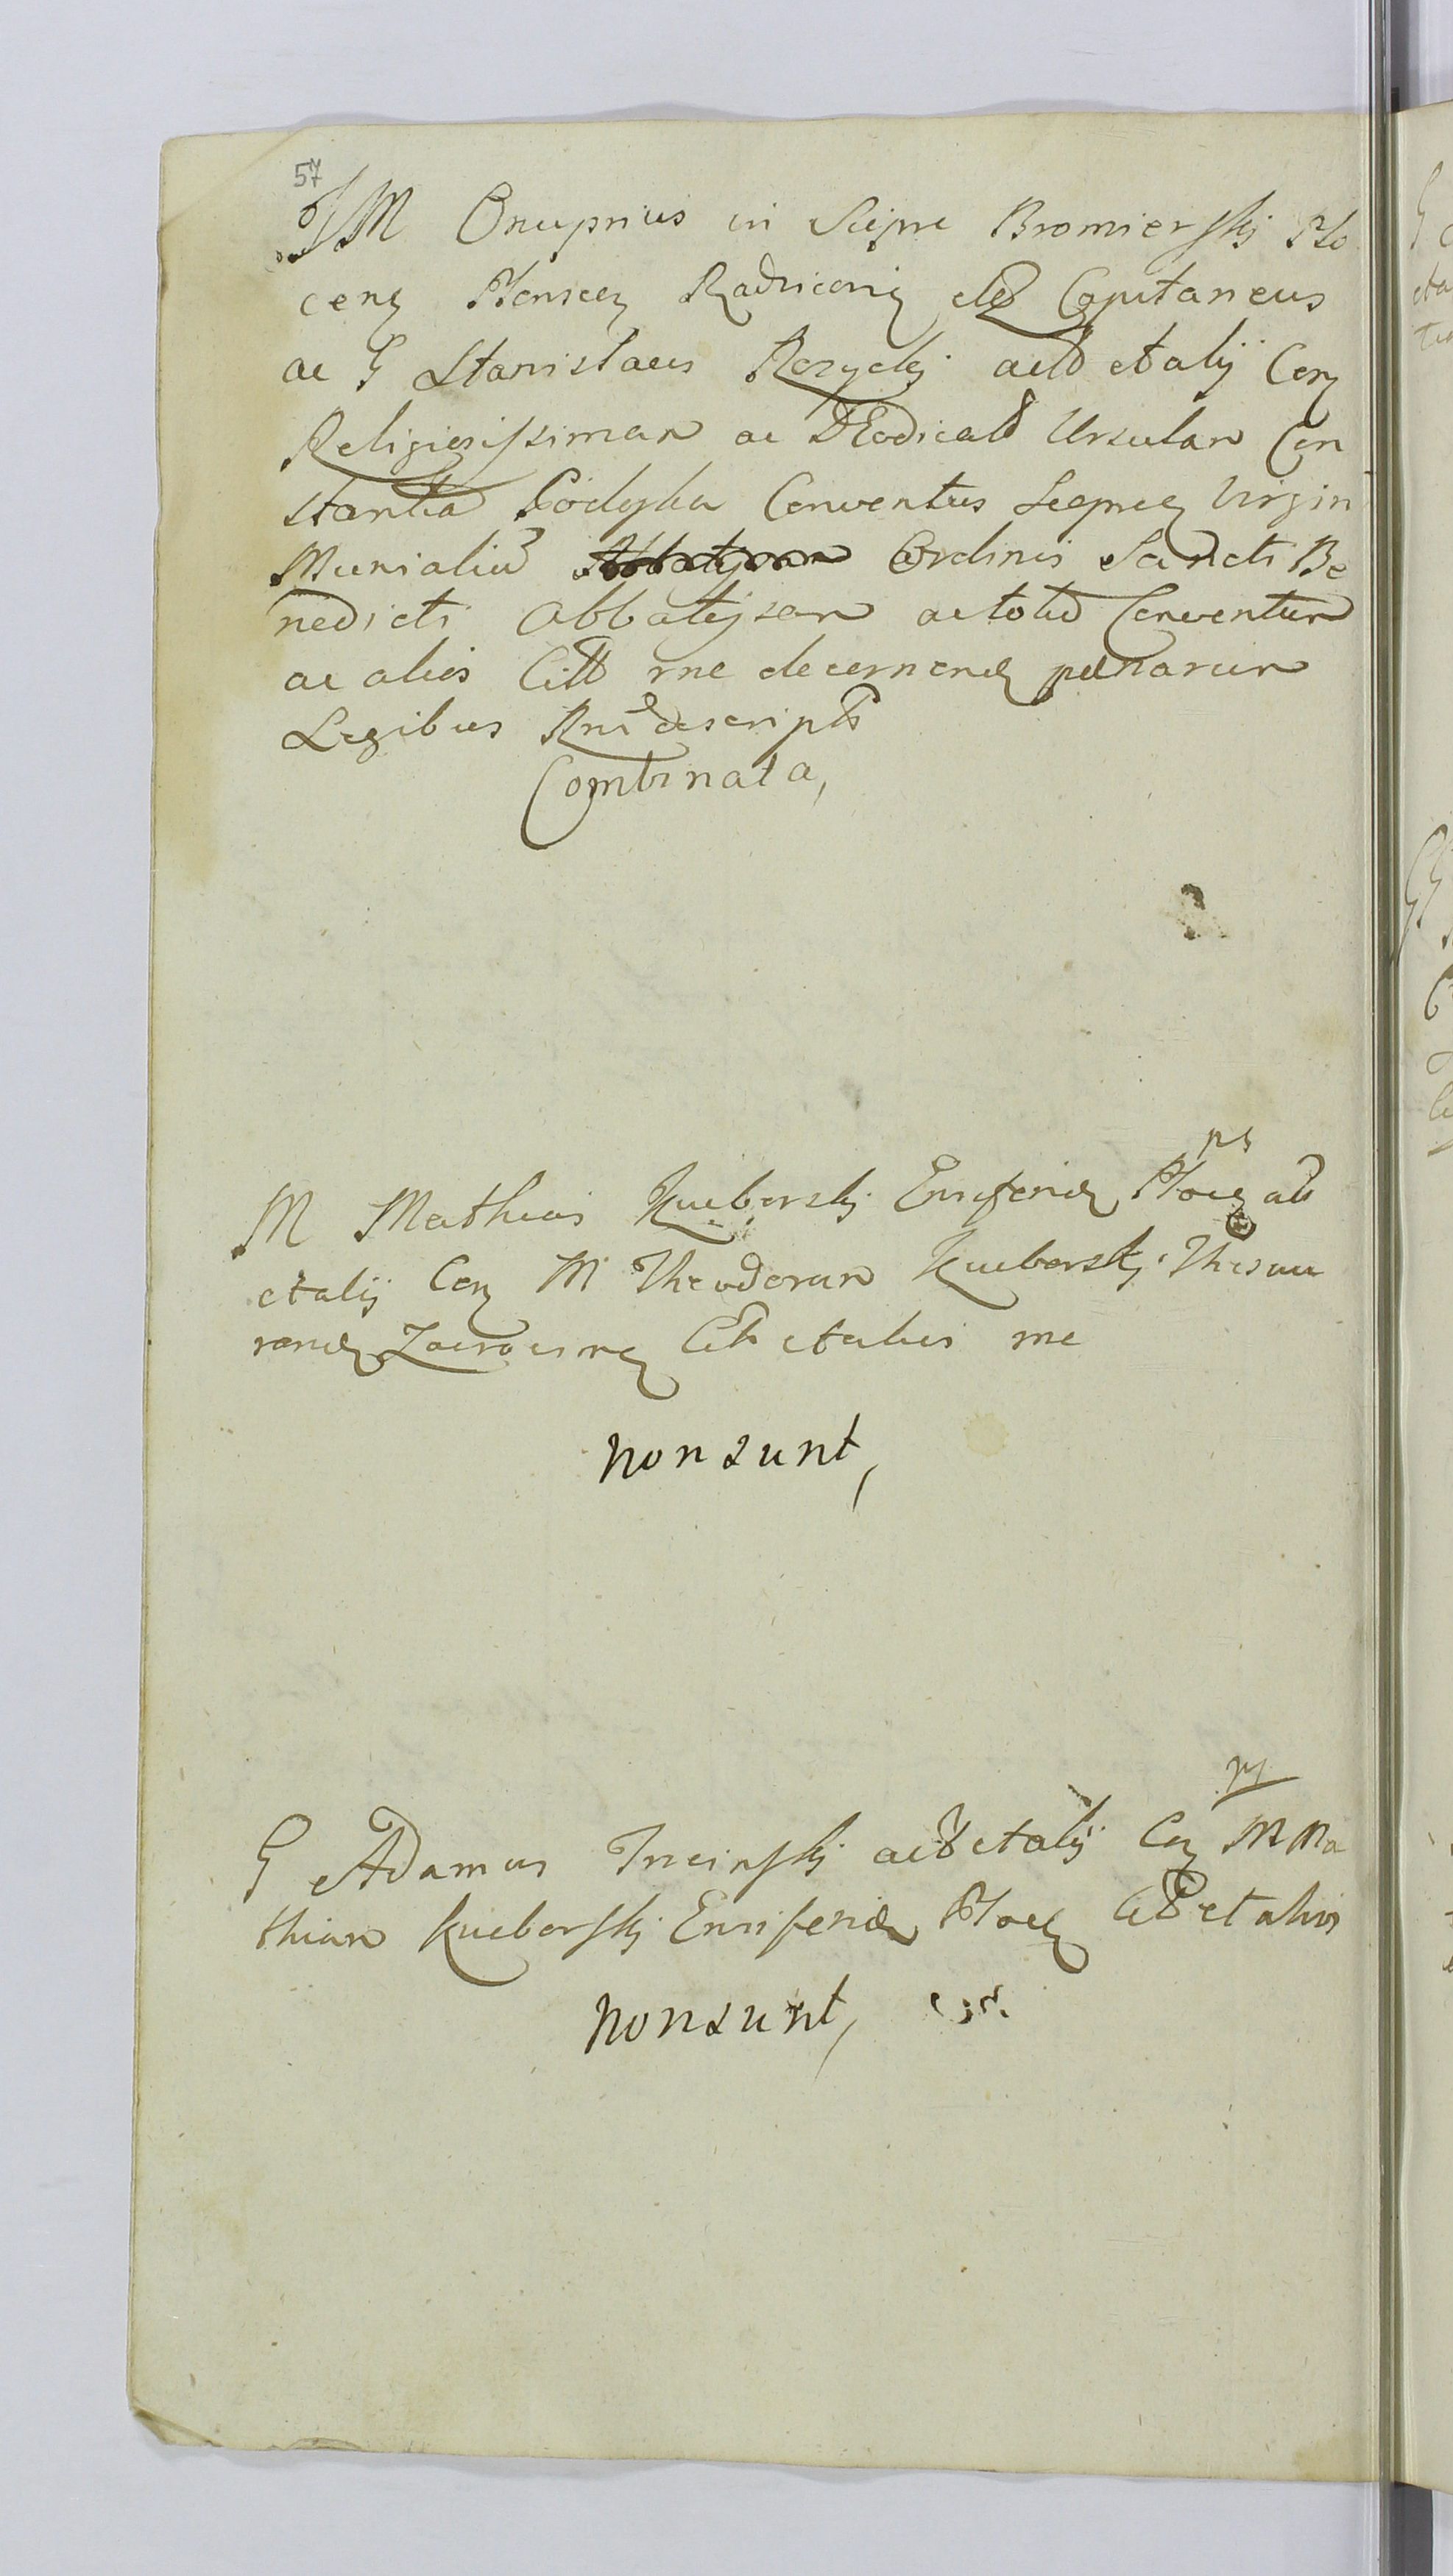 57
JM Onuprius in Siepre Bromierskj Plo
cens Plonscen Radzicens etc Capitaneus
ac G Stanislaus Rozyckj act et alij Con
Religiosissiman ac DEodicatt Ursulan Con
stantia Conventus Sieprcen Virgin
Munialiu Ordinis Sancti Be
nedicti Abbatijsan ac totu Conventum
ac alios Citt rne decernend pænarum
Legibus descript
Combinata,
ps
M Mathias Kucborskj Ensiferid Ploc act
et alij Con M Theodorum Kucborskj Thesau
rarid Zacrocimen Citt et alios rne
non sunt,
G Adamus act et alij Con M Ma
thian Kucborskj Ensiferid Ploce Citt et alios
non sunt,